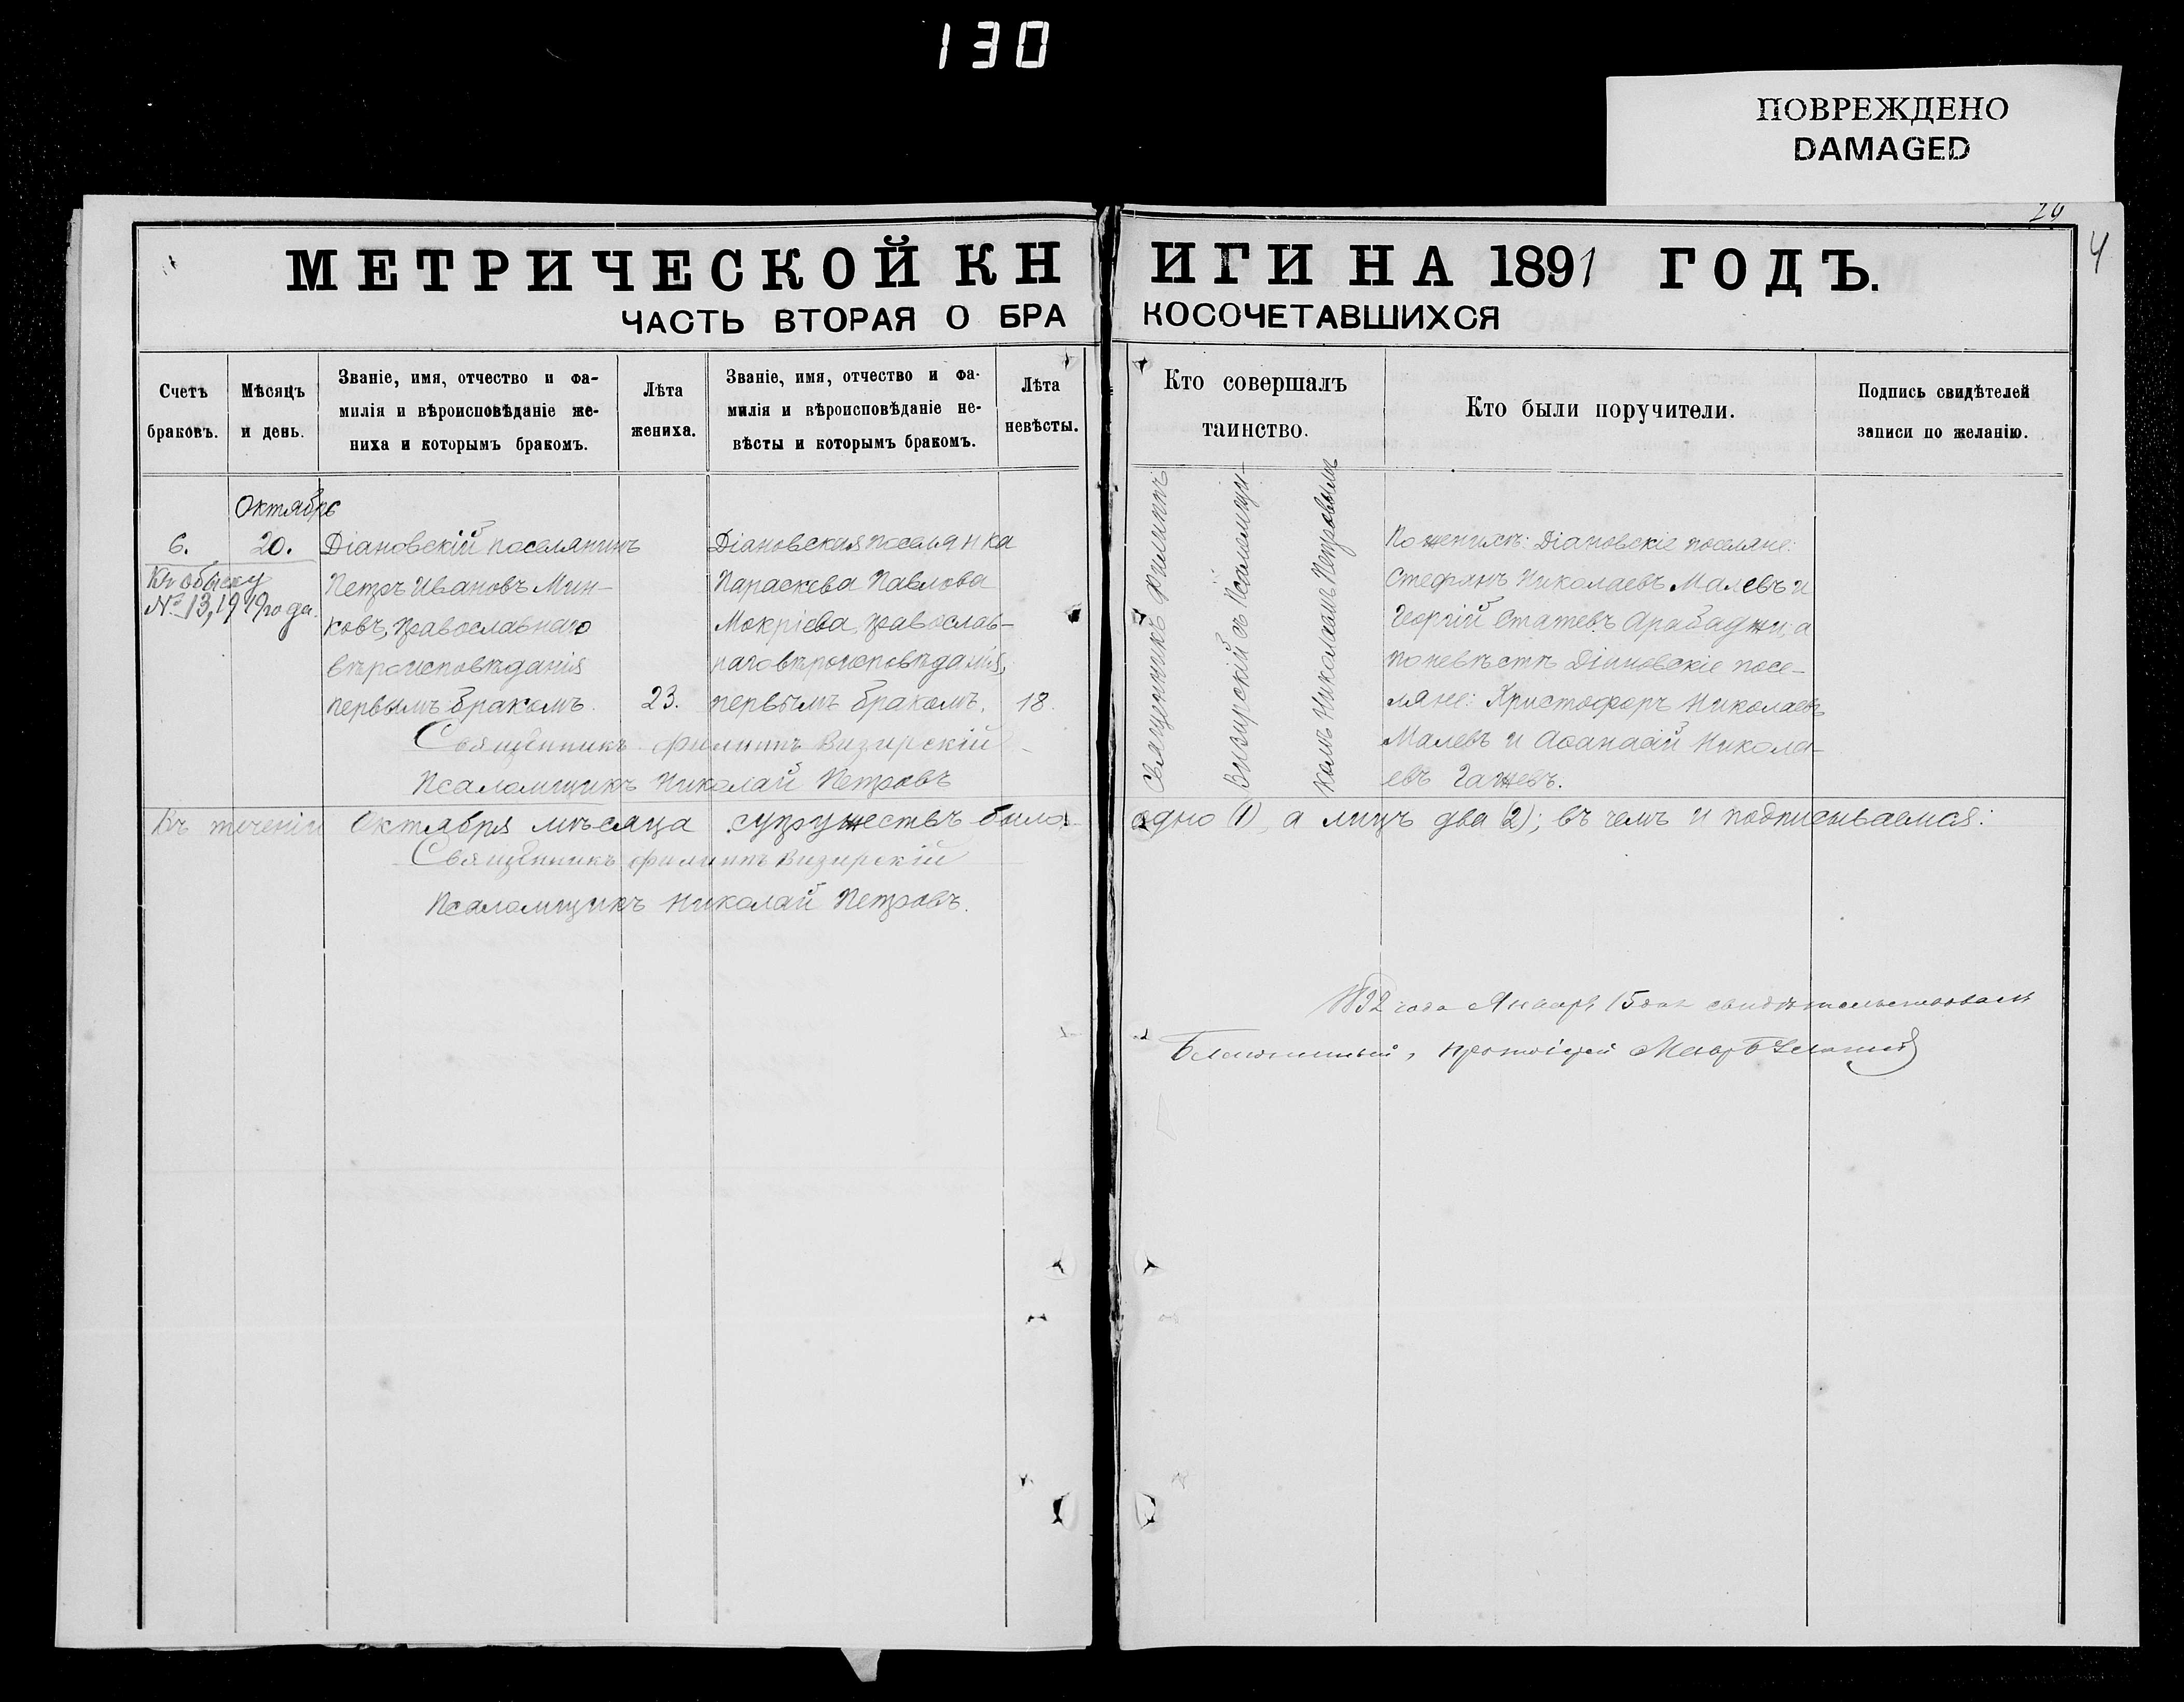 130
ПОВРЕЖДЕНО
DAMAGED
4
МЕТРИЧЕСКОЙ КН ИГИ НА 1891 ГОДЪ.
ЧАСТЬ ВТОРАЯ О БРА КОСОЧЕТАВШИХСЯ
Счетъ
браковъ.
Мѣсяцъ
и день.
Званіе, имя, отчество и фа-
милія и вѣроисповѣданіе же-
ниха и которымъ бракомъ.
Лѣта
жениха.
Званіе, имя, отчество и фа-
милія и вѣроисповѣданіе не-
вѣсты и которымъ бракомъ.
Лѣта
невѣсты.
Кто совершалъ
таинство.
Кто были поручители.
Подпись свидѣтелей
записи по желанію.
Октябрь
6.
Къ обыску
№ 13, 1919 года.
20.
Діановскій поселянинъ
Петръ Ивановъ Мин-
ковъ, православнаго
вѣроисповѣданія
первымъ бракомъ.
23.
Діановская поселянка
Параскева Павлова
Мокріева, православ-
наго вѣроисповѣданія,
первымъ бракомъ.
18.
Священникъ Филиппъ
Визирскій съ Псаломщи-
комъ Николаемъ Петровымъ
По женихѣ: Діановскіе поселяне:
Стефанъ Николаевъ Малевъ и
Георгій Статевъ Арабаджи, а
по невѣстѣ Діановскіе посе-
ляне: Христофоръ Николаевъ
Малевъ и Аѳанасій Никола-
евъ Гажевъ.
Священникъ Филиппъ Визирскій
Псаломщикъ Николай Петровъ
Въ теченіи Октября мѣсяца супружествъ было одно (1), а лицъ два (2); въ чемъ и подписываемся:
Священникъ Филиппъ Визирскій
Псаломщикъ Николай Петровъ.
1892 года Январь 15 дня свидѣтельствовалъ
Благочинный, протоіерей